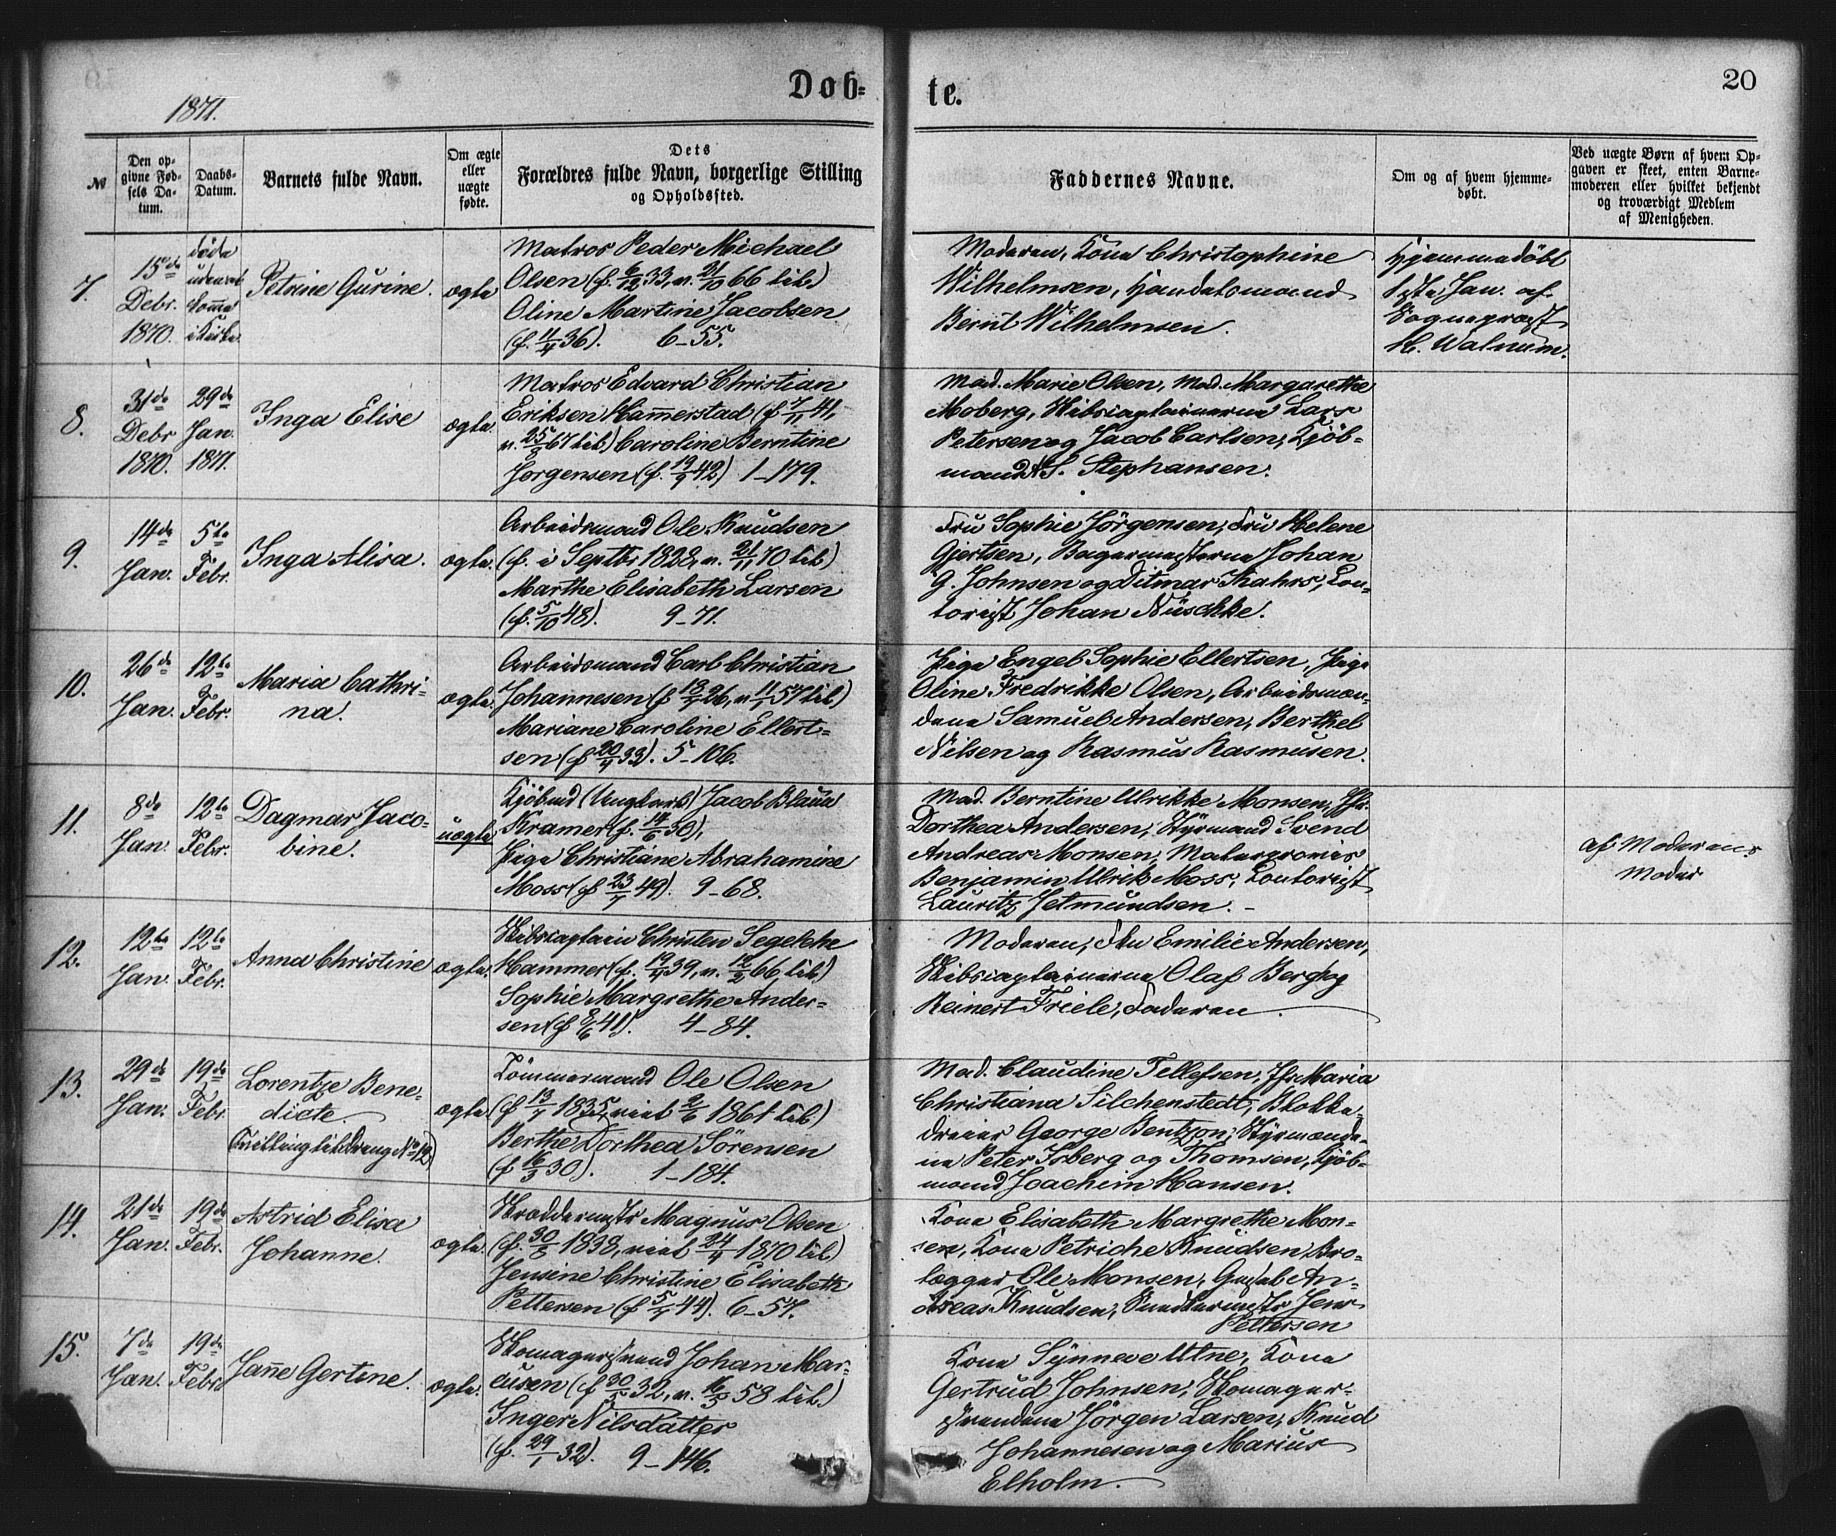 1871.
Døb-
te.
20
№
Den op-
givne Fød-
sels Da-
tum.
Daabs-
Datum.
Barnets fulde Navn.
Om ægte
eller
uægte
fødte.
Dets
Forældres fulde Navn, borgerlige Stilling
og Opholdssted.
Faddernes Navne.
Om og af hvem hjemme-
døbt.
Ved uægte Børn af hvem Op-
gaven er skeet, enten Barne-
moderen eller hvilket bekjendt
og troværdigt Medlem
af Menigheden.
7.
15de
Debr.
1870.
døde
uden at
komme
i Kirke.
Petrine Gurine.
ægte
Matros Peder Michael
Olsen (f. 6/12 33, v. 21/10 66 til)
Oline Martine Jacobsen
(f. 11/4 36). 6-55.
Moderen, Kone Christophine
Wilhelmsen, Handelsmand
Bernt Wilhelmsen.
Hjemmedöbt
Jan. af
Sognepræst
H. Walnum.
8.
31de
Debr
1870.
29de
Jan.
1871.
Inga Elise
ægte.
Matros Edvard Christian
Eriksen Hamerstad (f. 7/11 41,
v. 25/8 67 til) Caroline Berntine
Jørgensen (f. 19/9 42) 1-179.
Mad. Marie Olsen, Mad. Margarethe
Moberg, Skibscaptainerne Lars
Petersen og Jacob Carlsen, Kjöb-
mand A S. Stephansen.
9.
14de
Jan.
5te
Febr.
Inga Alisa.
ægte.
Arbeidsmand Ole Knudsen
(f. i Septbr 1828, v. 21/11 70 til)
Marthe Elisabeth Larsen
(f. 5/10 48). 9-71.
Fru Sophie Jörgensen, Fru Helene
Gjertsen, Bagermesterne Johan
G. Johnsen og Ditmar Kahrs, Con-
torist Johan Nüschke.
10.
26de
Jan.
12te
Febr.
Maria Cathri-
na.
ægte.
Arbeidsmand Carl Christian
Johannesen (f 18/7 26, v 11/1 57 til)
Mariane Caroline Ellert-
sen (f 20/4 33). 5-106.
Pige Engel Sophie Ellertsen, Pige
Oline Fredrikke Olsen, Arbeidsmæn-
dene Samuel Andersen, Berthel
Nilsen og Rasmus Rasmusen.
11.
8de
Jan.
12te
Febr.
Dagmar Jaco-
bine.
uægte
Kjöbmd (Ungkarl) Jacob Blauw
Kramer (f. 14/6 30),
Pige Christiane Abrahamine
Moss (f 23/7 49). 9-68.
Mad. Berntine Ulrikke Monsen, Jfr.
Dorthea Andersen, Styrmand Svend
Andreas Monsen, Malersvend
Benjamin Ulrik Moss, Contorist
Lauritz Jetmundsen. -
af Moderens
Moder
12.
12te
Jan.
12te
Febr.
Anna Christine
ægte.
Skibscaptain Christen Segelcke
Hammer (f. 19/4 39, v. 12/2 66, til)
Sophie Margrethe Ander-
sen (f 8/6 41). 4-84.
Moderen, Fru Emilie Andersen,
Skibscaptainerne Olaf Berg og
Reinert Friele, Faderen.
13.
29de
Jan.
19de
Febr.
Lorentze Bene-
dicte.
(Tvilling til Dreng No 12)
ægte.
Tömmermand Ole Olsen
(f 13/7 1835, viet 2/6 1861 til)
Berthe Dorthea Sörensen
(f 16/3 30). 1-184.
Mad. Claudine Tellefsen, Jfr Maria
Christiana Silchenstedt, Blokke-
dreier George Bentzon, Styrmænde-
ne Peter Isberg og Thomsen, Kjöb-
mand Joachim Hansen.
14.
21de
Jan.
19de
Febr.
Astrid Elisa
Johanne.
ægte.
Skræddermestr Magnus Olsen
(f. 30/8 1838, viet 24/4 1870 til)
Jensine Christine Elisabeth
Pettersen (f 5/7 44). 6-57.
Kone Elisabeth Margrethe Mon-
sen, Kone Petriche Knudsen, Bro-
lægger Ole Monsen, Gasbet. An-
dreas Knudsen, Jens
Pettersen
15.
7de
Jan.
19de
Febr.
Jane Gertine.
ægte.
Skomagersvend Johan Mar-
cusen (f 30/5 32, v. 16/5 58 til)
Inger Nilsdatter
(f. 29/1 32). 9-146.
Kone Synneve Utne, Kone
Gertrud Johnsen, Skomager-
svendene Jørgen Larsen, Knud
Johannesen og Marius
Elholm.